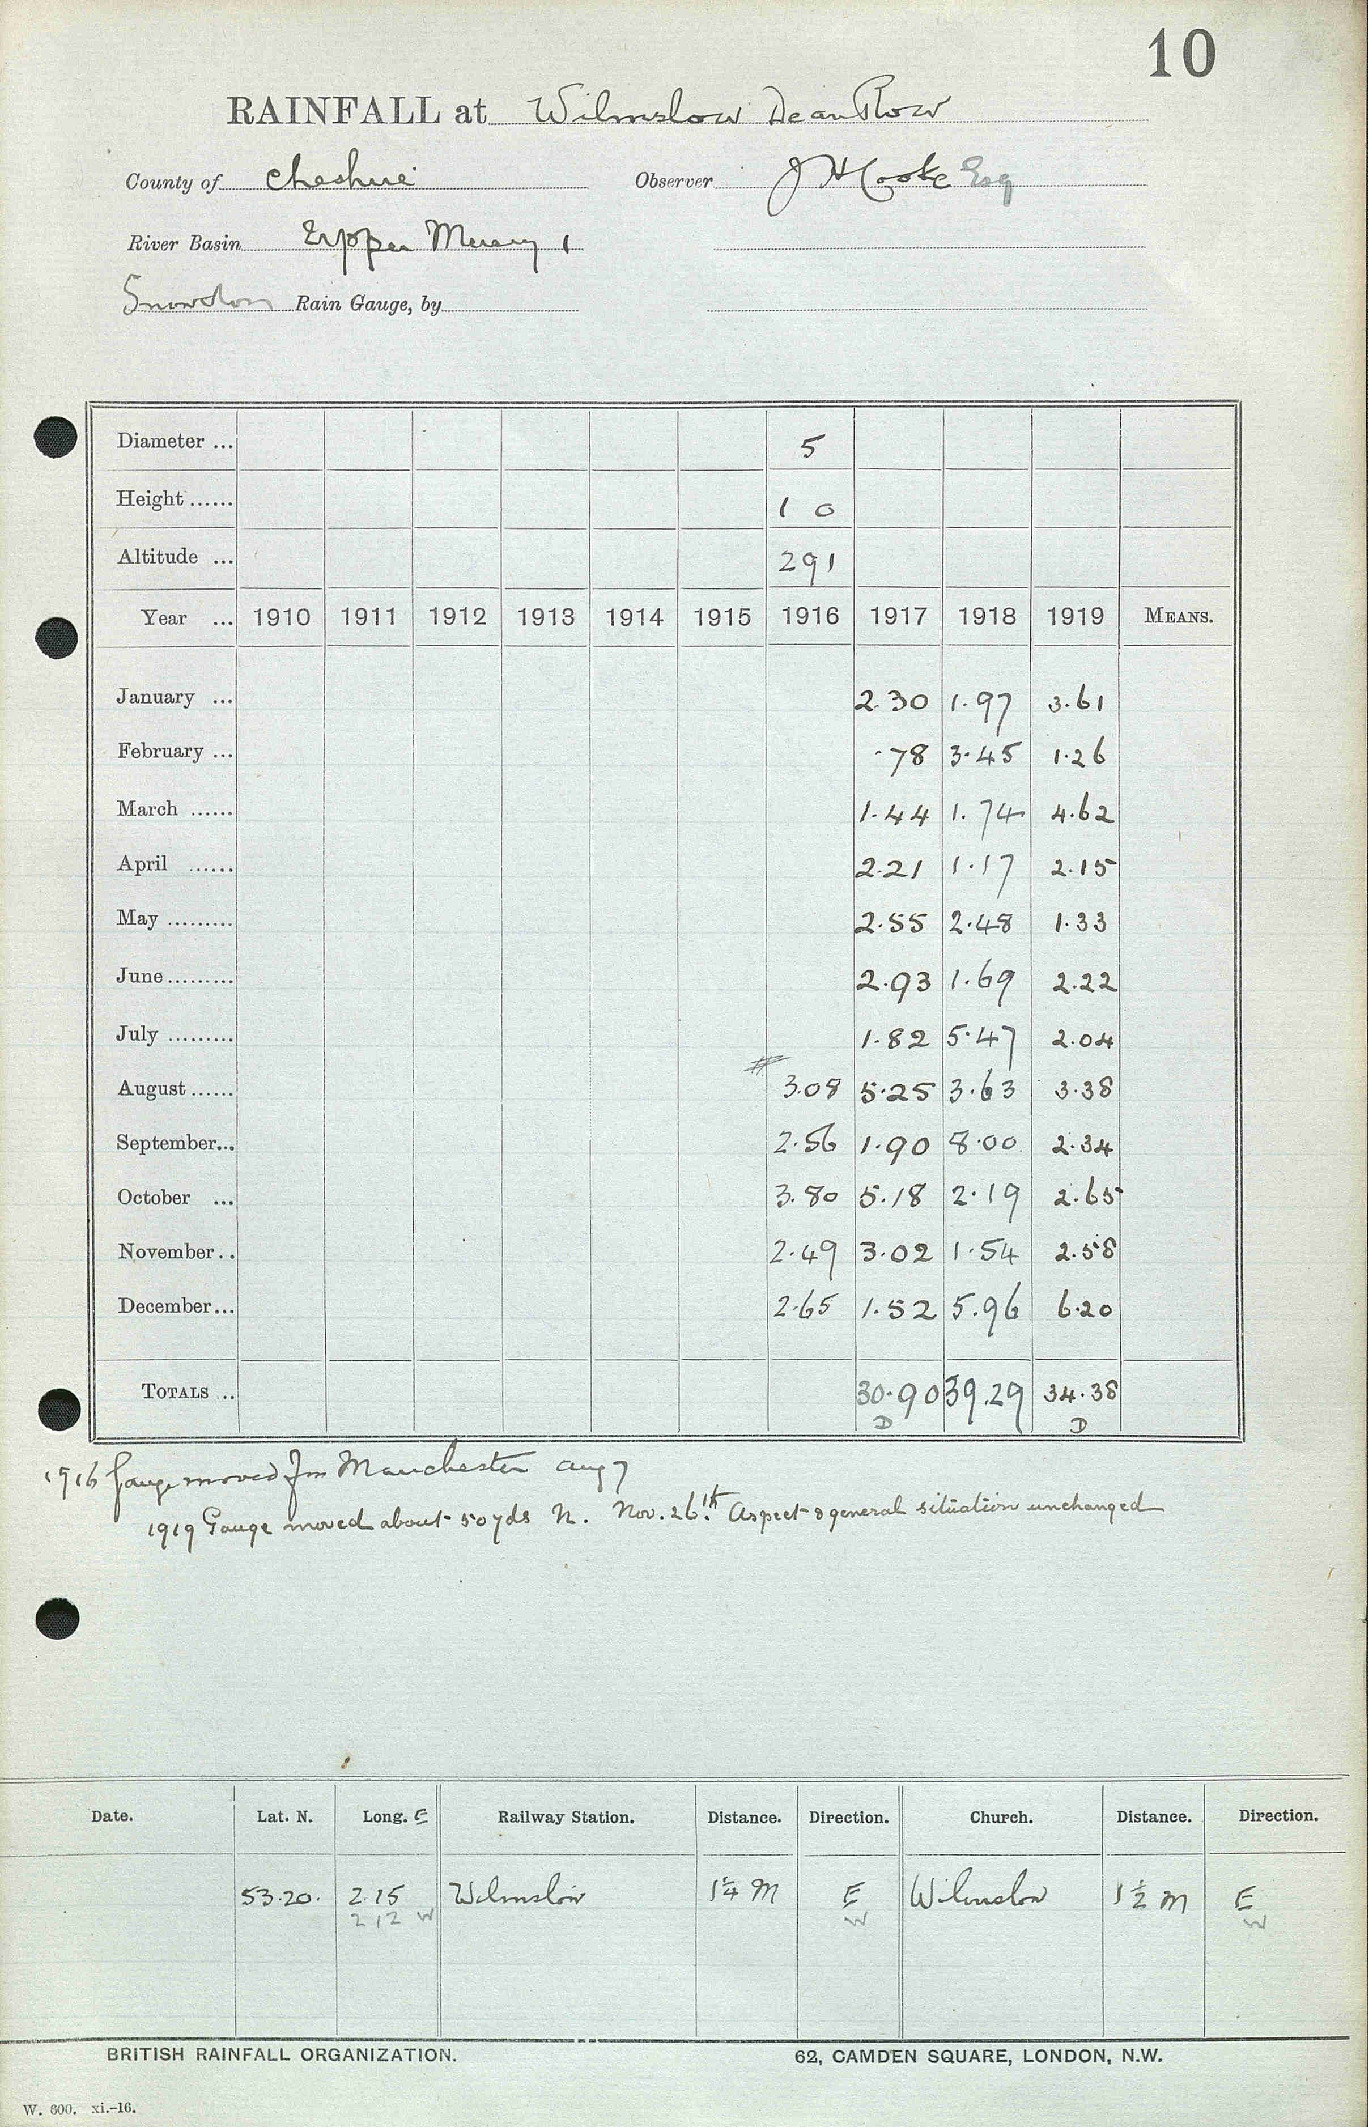 10
RAINFALL at Wilmslow Dean Row
County of Cheshire Observer J H Cooke Esq
River Basin Upper Mersey 1
Snowdon Rain Gauge, by
Diameter ... 5
Height ...... 1 0
Altitude ... 291
Year ... 1910 1911 1912 1913 1914 1915 1916 1917 1918 1919 MEANS.
January ... 2.30 1.97 3.61
February ... .78 3.45 1.26
March ...... 1.44 1.74 4.62
April ...... 2.21 1.17 2.15
May ......... 2.55 2.48 1.33
June......... 2.93 1.69 2.22
July ......... 1.82 5.47 2.04
August...... # 3.08 5.25 3.63 3.38
September... 2.56 1.90 8.00 2.34
October ... 3.80 5.18 2.19 2.65
November.. 2.49 3.02 1.54 2.58
December... 2.65 1.52 5.96 6.20
TOTALS .. 30.90 39.29 34.38
D D
1916 Gauge moved fm Manchester Aug 7
1919 Gauge moved about 50 yds N. Nov. 26th. Aspect & general situation unchanged
Date. Lat. N. Long. E Railway Station. Distance. Direction. Church. Distance. Direction.
53.20. 2.15 Wilmslow 1¼ M E Wilmslow 1½ M E
2 12 W W W
BRITISH RAINFALL ORGANIZATION. 62, CAMDEN SQUARE, LONDON, N.W.
W. 600. xi.-16.